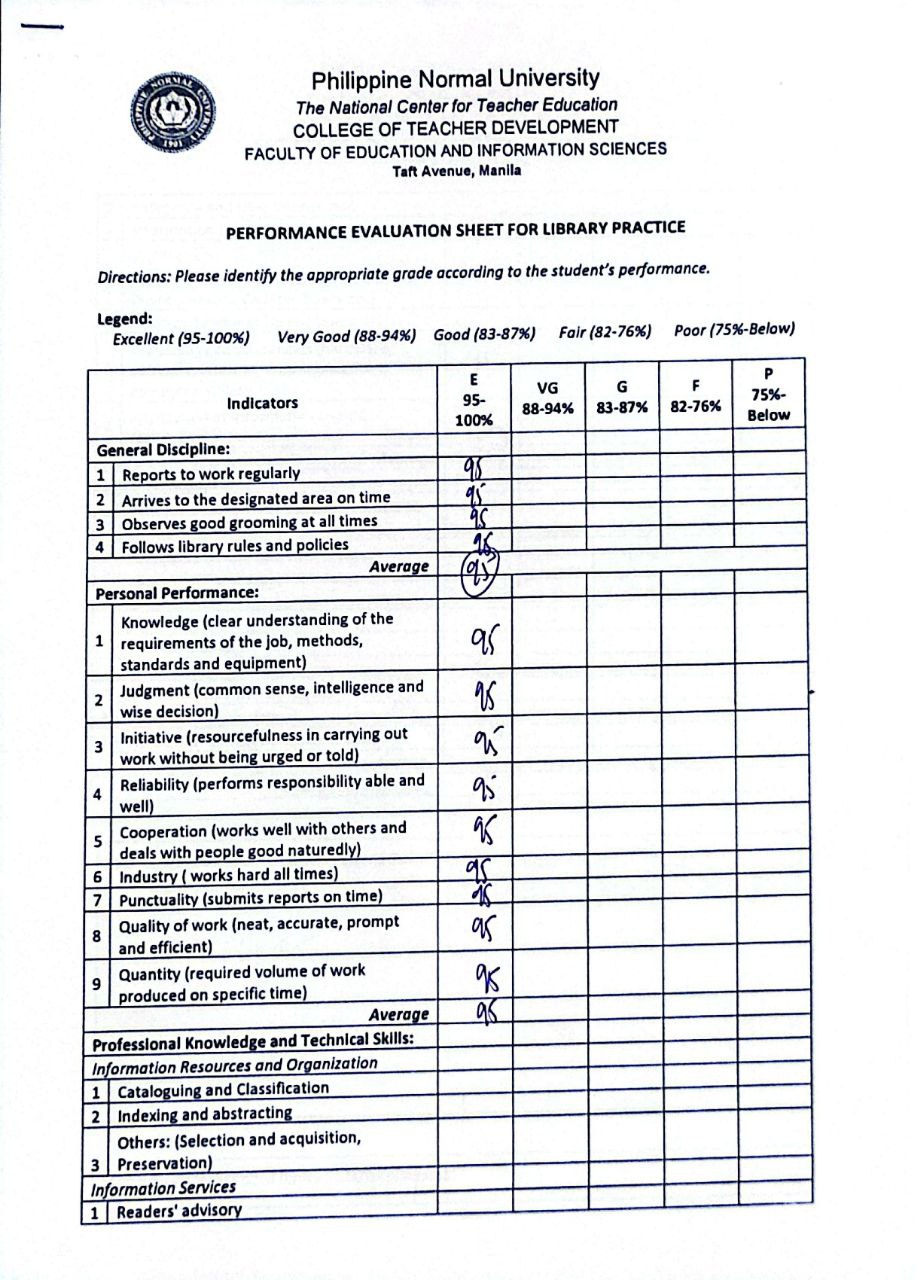 Philippine Normal University
The National Center for Teacher Education
COLLEGE OF TEACHER DEVELOPMENT
FACULTY OF EDUCATION AND INFORMATION SCIENCES
Taft Avenue, Manila
PHILIPPINE NORMAL UNIVERSITY
1901
PERFORMANCE EVALUATION SHEET FOR LIBRARY PRACTICE
Directions: Please identify the appropriate grade according to the student's performance.
Legend:
Excellent (95-100%) Very Good (88-94%) Good (83-87%) Fair (82-76%) Poor (75%-Below)
Indicators E 95-100% VG 88-94% G 83-87% F 82-76% P 75%-Below
General Discipline:
1 Reports to work regularly 95
2 Arrives to the designated area on time 95
3 Observes good grooming at all times 95
4 Follows library rules and policies 95
Average 95
Personal Performance:
1 Knowledge (clear understanding of the
requirements of the job, methods, 95
standards and equipment)
2 Judgment (common sense, intelligence and 95
wise decision)
3 Initiative (resourcefulness in carrying out 95
work without being urged or told)
4 Reliability (performs responsibility able and 95
well)
5 Cooperation (works well with others and 95
deals with people good naturedly)
6 Industry ( works hard all times) 95
7 Punctuality (submits reports on time) 95
8 Quality of work (neat, accurate, prompt 95
and efficient)
9 Quantity (required volume of work 95
produced on specific time)
Average 95
Professional Knowledge and Technical Skills:
Information Resources and Organization
1 Cataloguing and Classification
2 Indexing and abstracting
Others: (Selection and acquisition,
3 Preservation)
Information Services
1 Readers' advisory